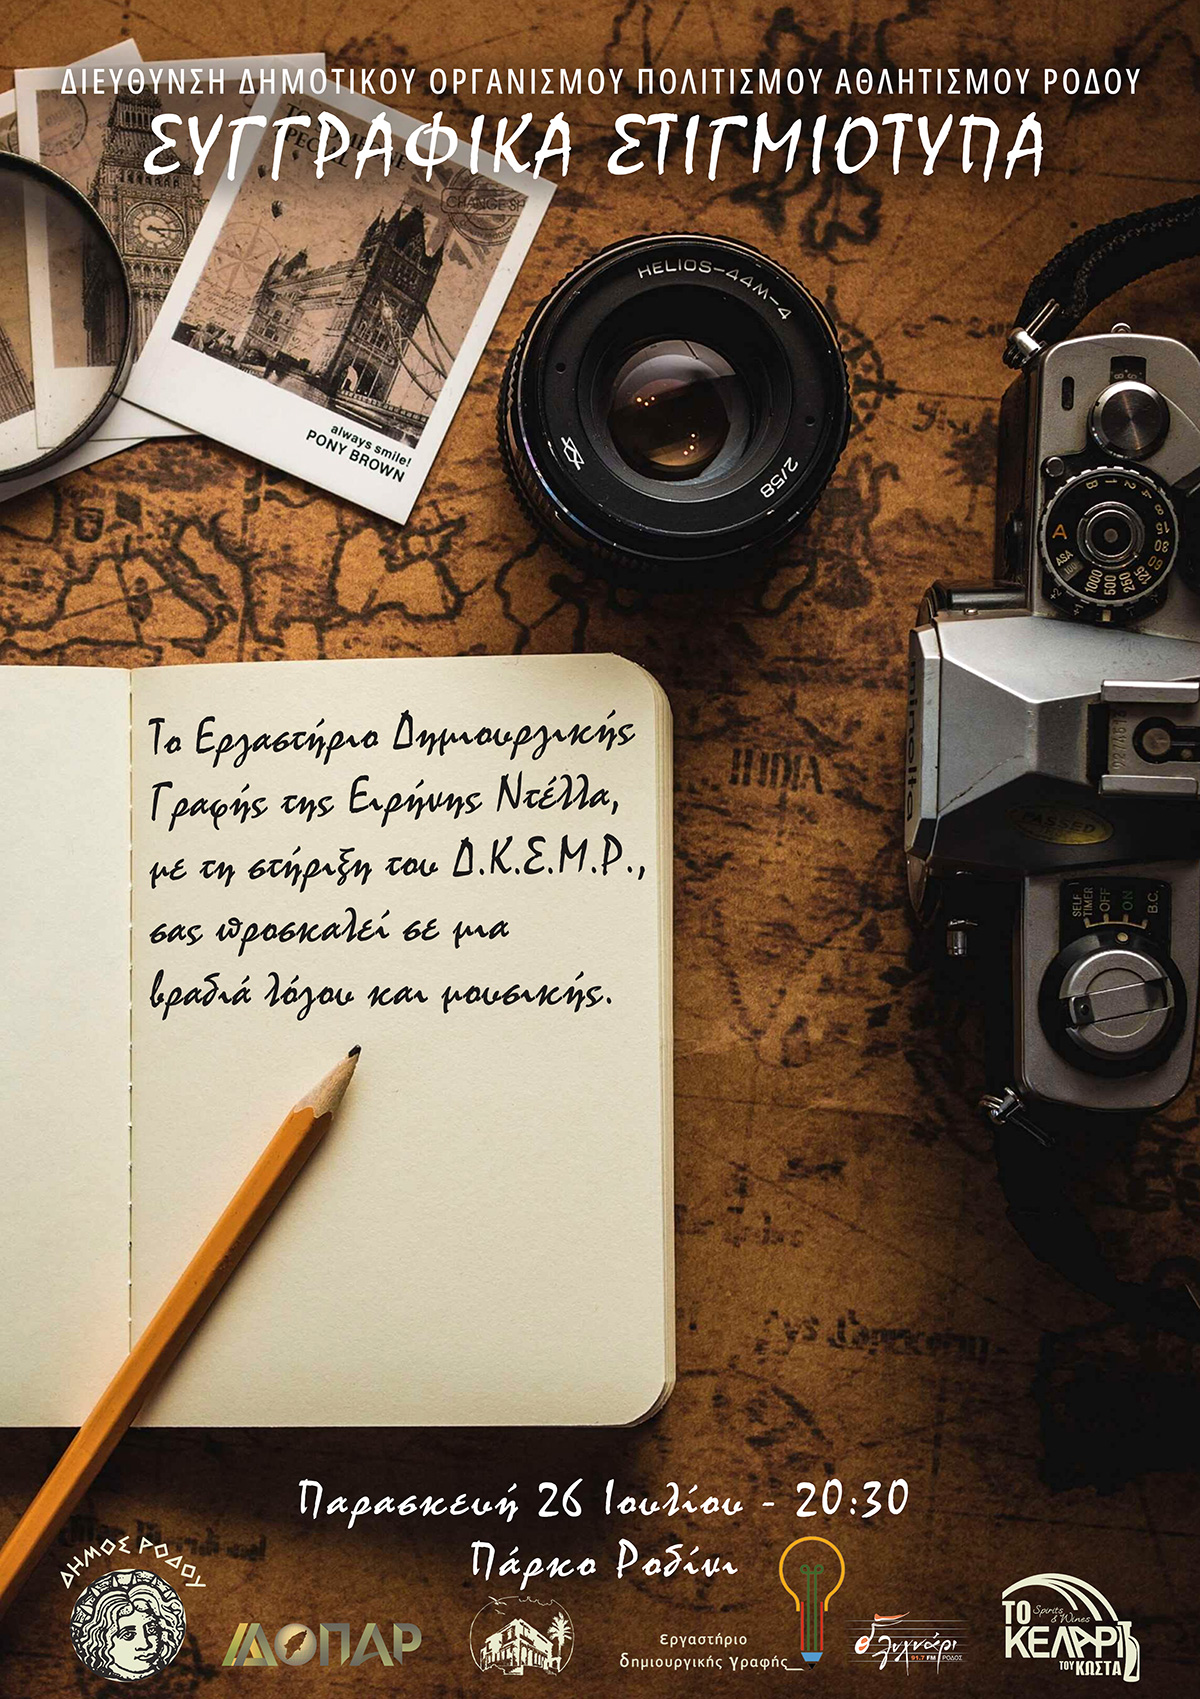 ΔΙΕΥΘΥΝΣΗ ΔΗΜΟΤΙΚΟΥ ΟΡΓΑΝΙΣΜΟΥ ΠΟΛΙΤΙΣΜΟΥ ΑΘΛΗΤΙΣΜΟΥ ΡΟΔΟΥ
ΣΥΓΓΡΑΦΙΚΑ ΣΤΙΓΜΙΟΤΥΠΑ
CHANGE
always smile!
PONY BROWN
HELIOS-44M-4
2/58
A
ASA
1000 500 250 125
minolta
Το Εργαστήριο Δημιουργικής
Γραφής της Ειρήνης Ντέλλα,
με τη στήριξη του Δ.Κ.Ε.Μ.Ρ.,
σας προσκαλεί σε μια
βραδιά λόγου και μουσικής.
INDIA
PASSED
SELF TIMER OFF ON B.C.
Παρασκευή 26 Ιουλίου - 20:30
Πάρκο Ροδίνι
ΔΗΜΟΣ ΡΟΔΟΥ
ΔΟΠΑΡ
εργαστήριο
δημιουργικής γραφής_
λυχνάρι
91.7 FM ΡΟΔΟΣ
ΤΟ
Spirits
& Wines
ΚΕΛΑΡΙ
ΤΟΥ ΚΩΣΤΑ